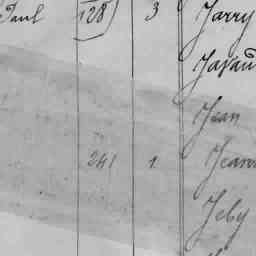 Paul 128 3 Jarry
Javau
Jean
241 1 Jean
Jeby